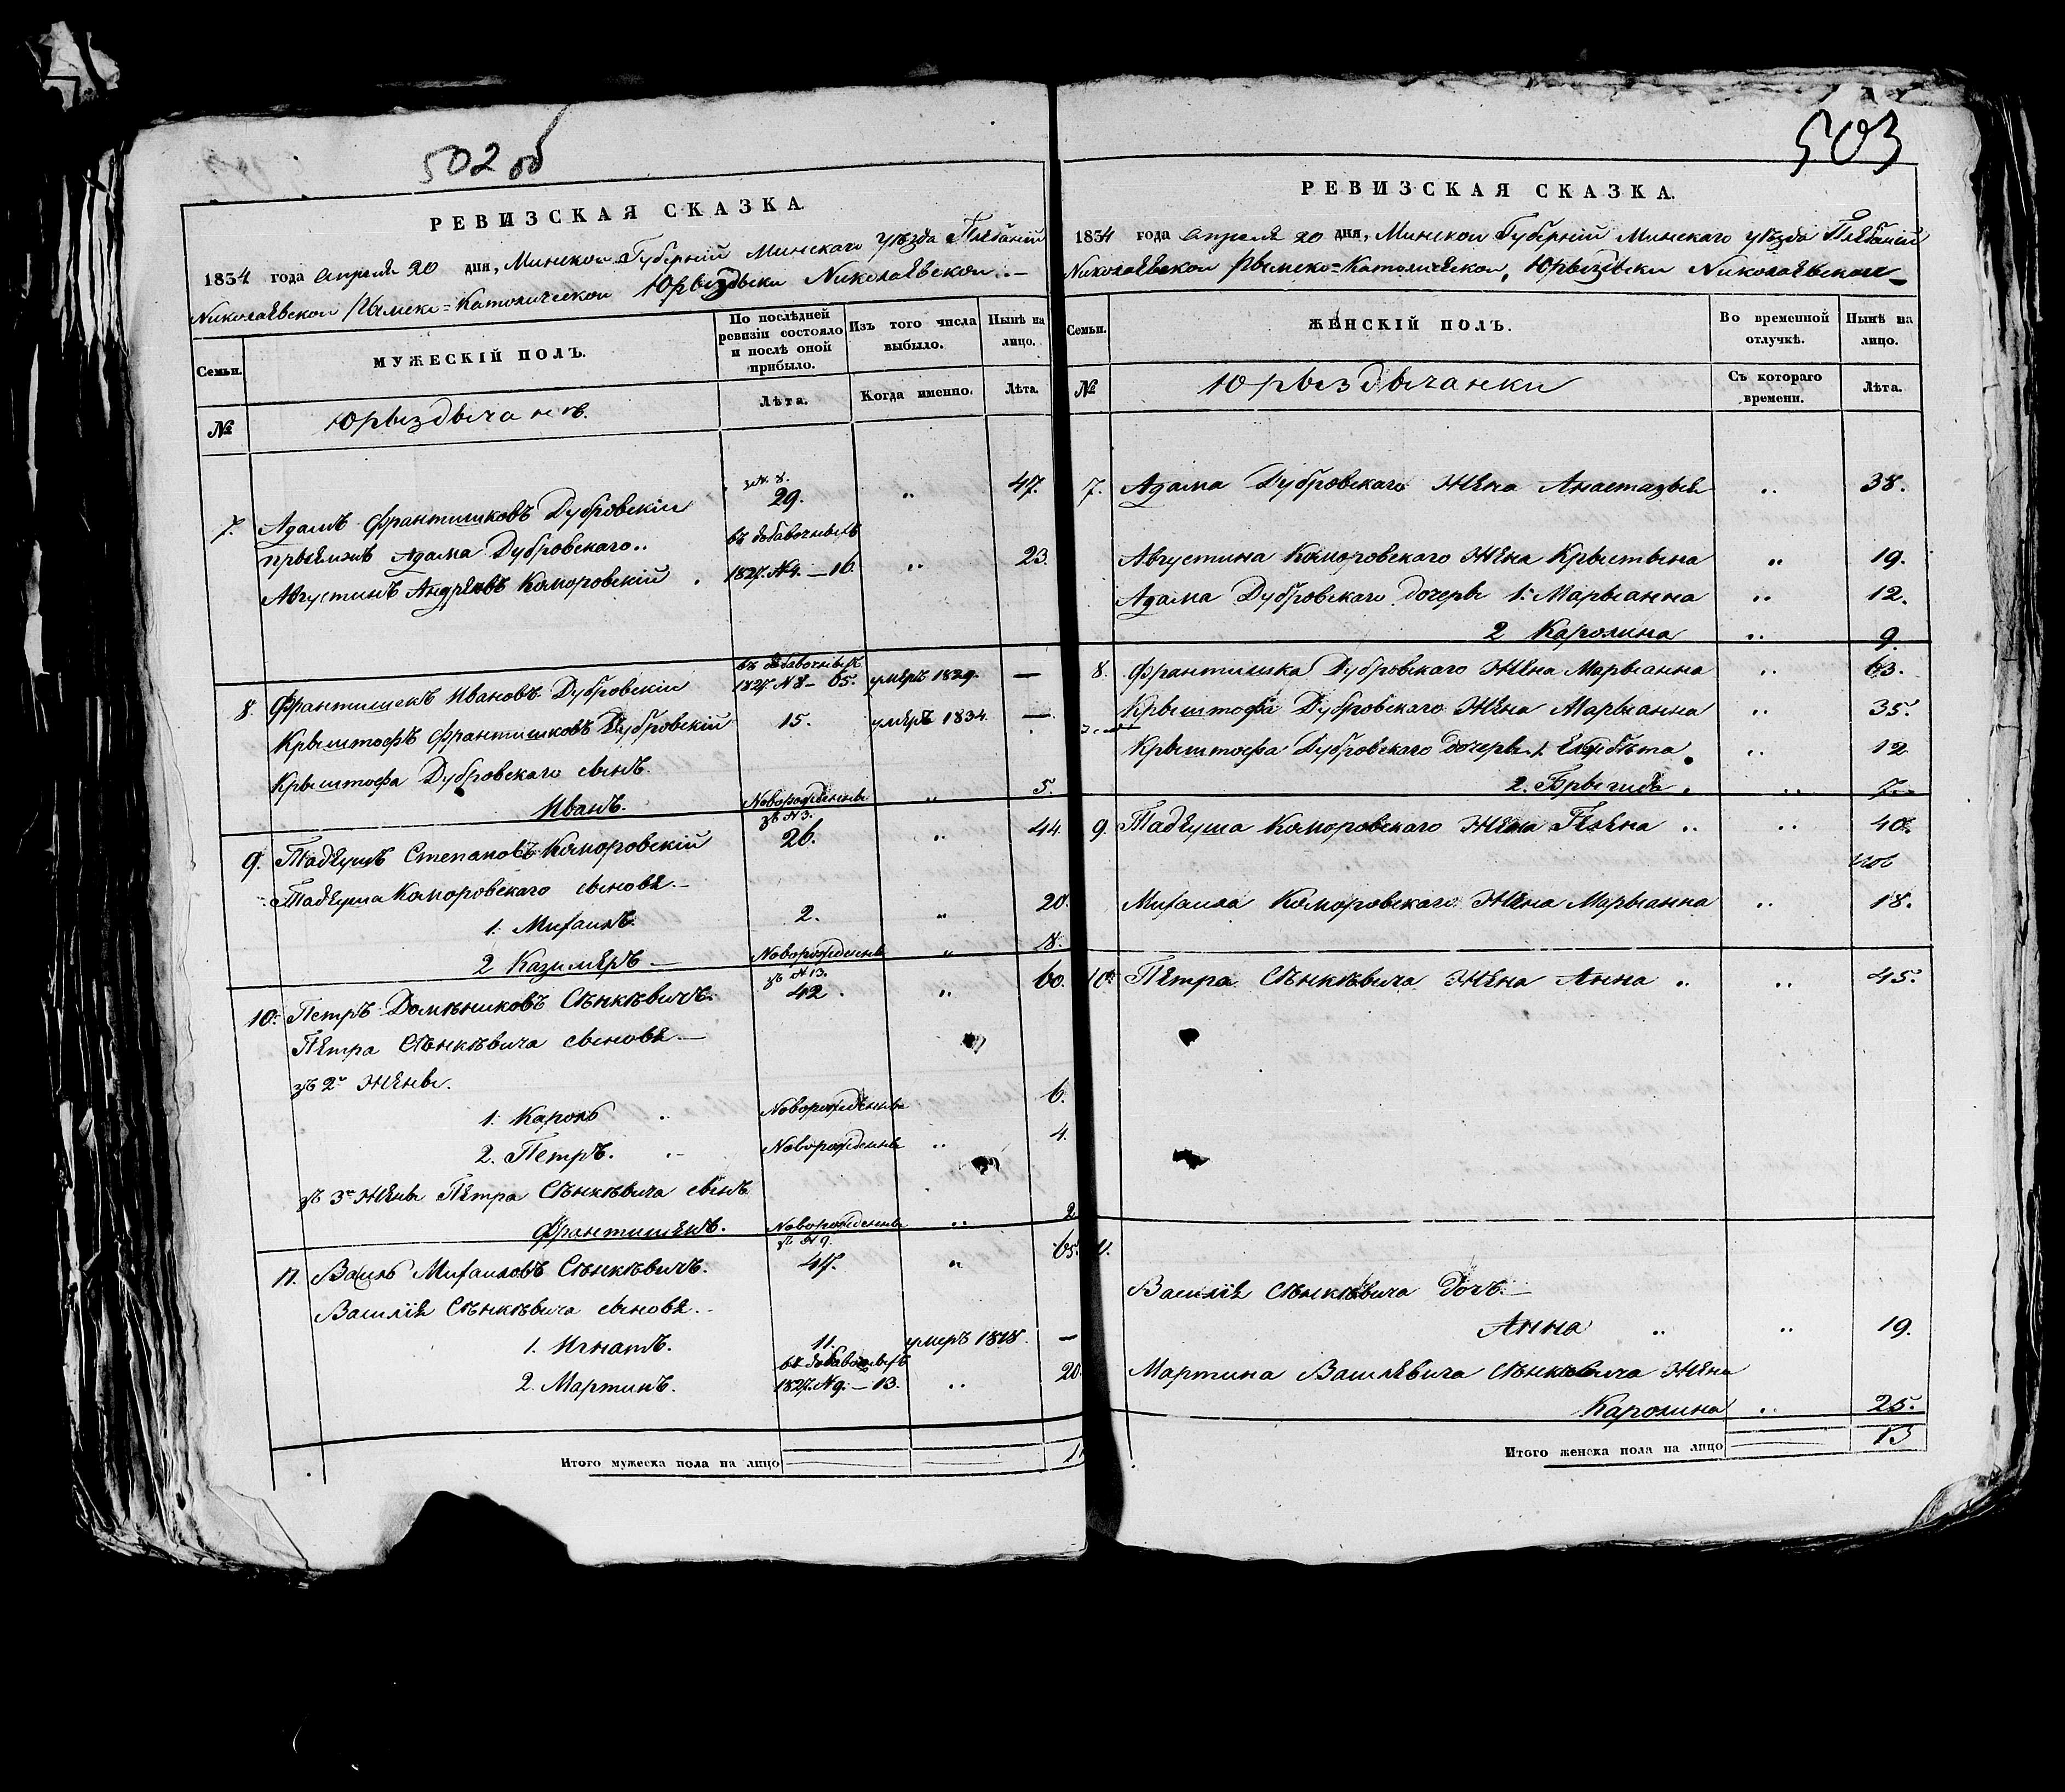 502 об
РЕВИЗСКАЯ СКАЗКА
1834 года Апреля 20 дня, Минской Губерніи Минскаго уѣзда Плебаніи
Николаевской Рымско=Католической Юрыздыки Николаевской.—
Семьи.
МУЖЕСКІЙ ПОЛЪ.
По послѣдней ревизіи состояло и послѣ оной прибыло.
Изъ того числа выбыло.
Нынѣ на лицо.
№
Юрыздычанѣ.
Лѣта.
Когда именно.
Лѣта.
зъ N. 8.
7. Адамъ Франтишковъ Дубровскій 29. „ 47.
прыемжъ Адама Дубровскаго.. въ добавочныхъ
Августинъ Андреевъ Коморовскій 1827. N4. — 16. „ 23.
въ добавочныхъ
8. Франтишекъ Ивановъ Дубровскій 1827. N 8 — 65. умеръ 1829. —
Крыштофъ Франтишковъ Дубровскій 15. умеръ 1834. —
Крыштофа Дубровскаго сынъ.
Иванъ. Новорожденны „ 5.
зъ N 3.
9. Тадеушъ Степановъ Коморовскій 26. „ 44.
Тадеуша Коморовскаго сыновя.—
1. Михаилъ. 2. „ 20.
2 Казимеръ — Новорожденны „ 8.
зъ N 13.
10. Петръ Доменниковъ Сѣнкѣвичъ. 42. „ 60.
Петра Сѣнкѣвича сыновя.—
зъ 2й жены.
1. Кароль Новорожденны 6.
2. Петръ. Новорожденны „ 4.
зъ 3й жены Петра Сѣнкѣвича сынъ
Франтишекъ. Новорожденны „ 2
зъ N 9.
11. Василь Михаиловъ Сѣнкѣвичъ. 47. „ 65.
Василія Сѣнкѣвича сыновя.—
1. Игнатъ. 11. умеръ 1818. —
въ добавочныхъ
2. Мартинъ. 1827. N 9. — 13. „ 20.
Итого мужеска пола на лицо
503
РЕВИЗСКАЯ СКАЗКА.
1834 года Апреля 20 дня, Минской Губерніи Минскаго уѣзда Плебаніи
Николаевской Рымско=Католической, Юрыздыки Николаевской—
Семьи.
ЖЕНСКІЙ ПОЛЪ.
Во временной отлучкѣ.
Нынѣ на лицо.
№
Юрыздычанки
Съ котораго времени.
Лѣта.
7. Адама Дубровскаго жена Анастазыя „ 38.
Августина Коморовскаго жена Крыстына „ 19.
Адама Дубровскаго дочеры 1. Марыанна „ 12.
2 Каролина „ 9.
8. Франтишка Дубровскаго жена Марыанна „ 63.
Крыштофа Дубровскаго жена Марыанна „ 35.
Крыштофа Дубровскаго дочеры. 1. Ельзбѣта „ 12
2. Брыгида. „ 7.
9. Тадеуша Коморовскаго жена Гелена „ „ 40.
Михаила Коморовскаго жена Марыанна „ 18.
10. Петра Сѣнкѣвича жена Анна „ „ 45.
11.
Василія Сѣнкѣвича дочъ.—
Анна „ „ 19.
Мартина Василевича Сѣнкѣвича жена
Каролина „ 25.
Итого женска пола на лицо 13